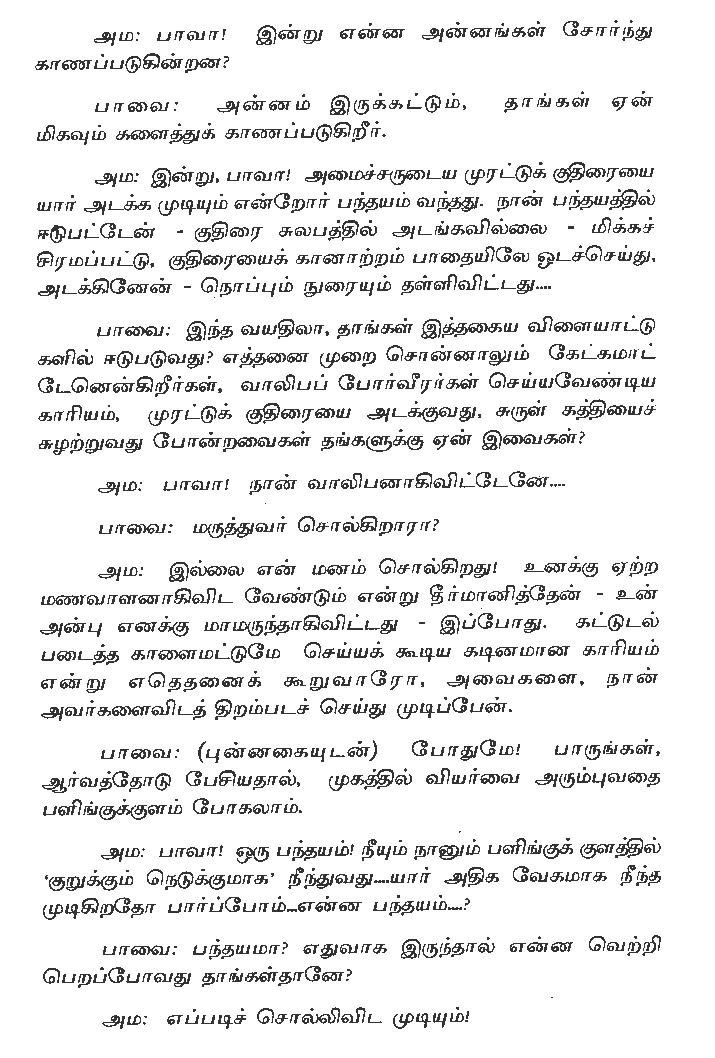 அம: பாவா! இன்று என்ன அன்னங்கள் சோர்ந்து
காணப்படுகின்றன?
பாவை: அன்னம் இருக்கட்டும், தாங்கள் ஏன்
மிகவும் களைத்துக் காணப்படுகிறீர்.
அம: இன்று, பாவா! அமைச்சருடைய முரட்டுக் குதிரையை
யார் அடக்க முடியும் என்றோர் பந்தயம் வந்தது. நான் பந்தயத்தில்
ஈடுபட்டேன் - குதிரை சுலபத்தில் அடங்கவில்லை - மிக்கச்
சிரமப்பட்டு, குதிரையைக் கானாற்றம் பாதையிலே ஓடச்செய்து,
அடக்கினேன் - நொப்பும் நுரையும் தள்ளிவிட்டது....
பாவை: இந்த வயதிலா, தாங்கள் இத்தகைய விளையாட்டு
களில் ஈடுபடுவது? எத்தனை முறை சொன்னாலும் கேட்கமாட்
டேனென்கிறீர்கள், வாலிபப் போர்வீரர்கள் செய்யவேண்டிய
காரியம், முரட்டுக் குதிரையை அடக்குவது, சுருள் கத்தியைச்
சுழற்றுவது போன்றவைகள் தங்களுக்கு ஏன் இவைகள்?
அம: பாவா! நான் வாலிபனாகிவிட்டேனே....
பாவை: மருத்துவர் சொல்கிறாரா?
அம: இல்லை என் மனம் சொல்கிறது! உனக்கு ஏற்ற
மணவாளனாகிவிட வேண்டும் என்று தீர்மானித்தேன் - உன்
அன்பு எனக்கு மாமருந்தாகிவிட்டது - இப்போது. கட்டுடல்
படைத்த காளைமட்டுமே செய்யக் கூடிய கடினமான காரியம்
என்று எதெதனைக் கூறுவாரோ, அவைகளை, நான்
அவர்களைவிடத் திறம்படச் செய்து முடிப்பேன்.
பாவை: (புன்னகையுடன்) போதுமே! பாருங்கள்,
ஆர்வத்தோடு பேசியதால், முகத்தில் வியர்வை அரும்புவதை
பளிங்குக்குளம் போகலாம்.
அம: பாவா! ஒரு பந்தயம்! நீயும் நானும் பளிங்குக் குளத்தில்
'குறுக்கும் நெடுக்குமாக' நீந்துவது....யார் அதிக வேகமாக நீந்த
முடிகிறதோ பார்ப்போம்...என்ன பந்தயம்....?
பாவை: பந்தயமா? எதுவாக இருந்தால் என்ன வெற்றி
பெறப்போவது தாங்கள்தானே?
அம: எப்படிச் சொல்லிவிட முடியும்!